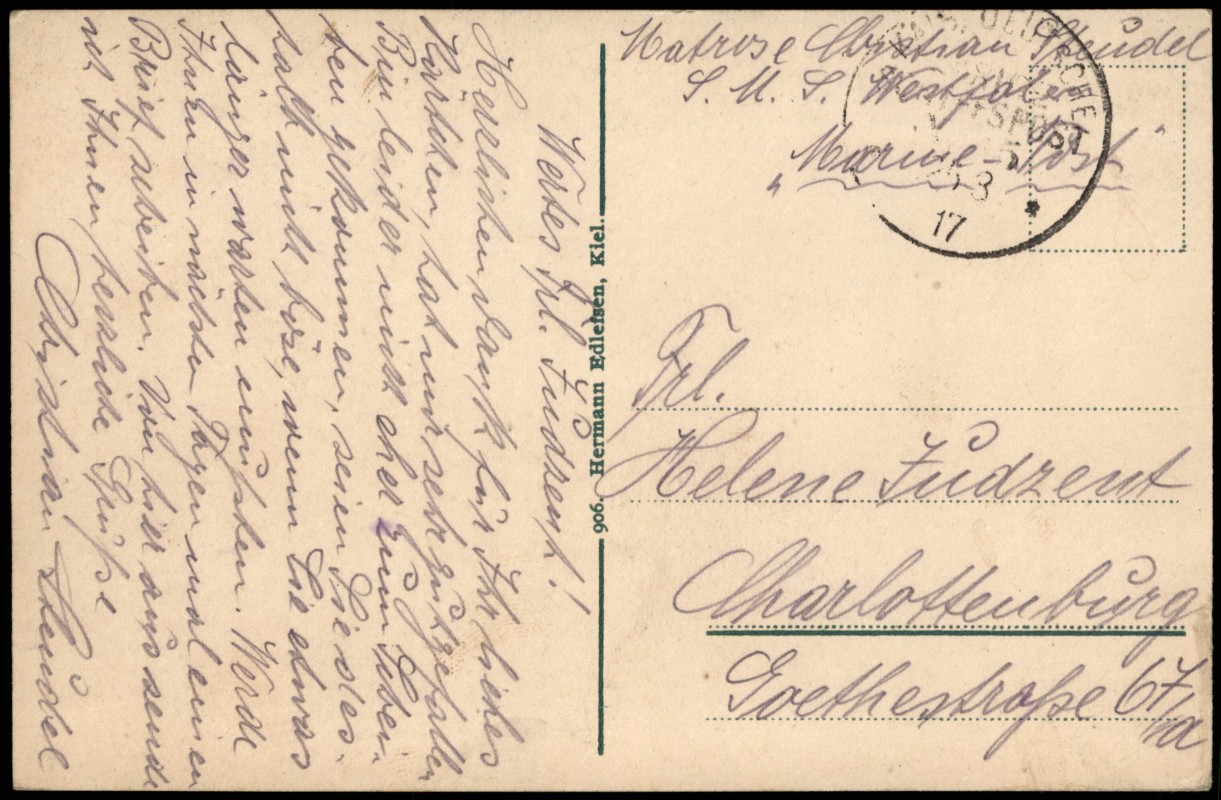 Matrose Christian Steudel
S. M. S. Westfalen
„Marine-Post“
KAIS. DEUTSCHE
MARINE-
SCHIFFSPOST
25 3
17
*
Frl.
Helene Fudzent
Charlottenburg
Goethestraße 67/IIa
906. Hermann Edlefsen, Kiel.
Wertes Frl. Fudzent!
Herzlichen Dank für Ihr liebes
Kärtchen, hat mir sehr gut gefallen
Bin leider nicht eher zum Schrei-
ben gekommen, seien Sie des-
halb nicht böse, wenn Sie etwas
länger warten mußten. Werde
Ihnen in nächsten Tagen mal einen
Brief schreiben. Von hier aus sende
ich Ihnen herzliche Grüße
Christian Steudel